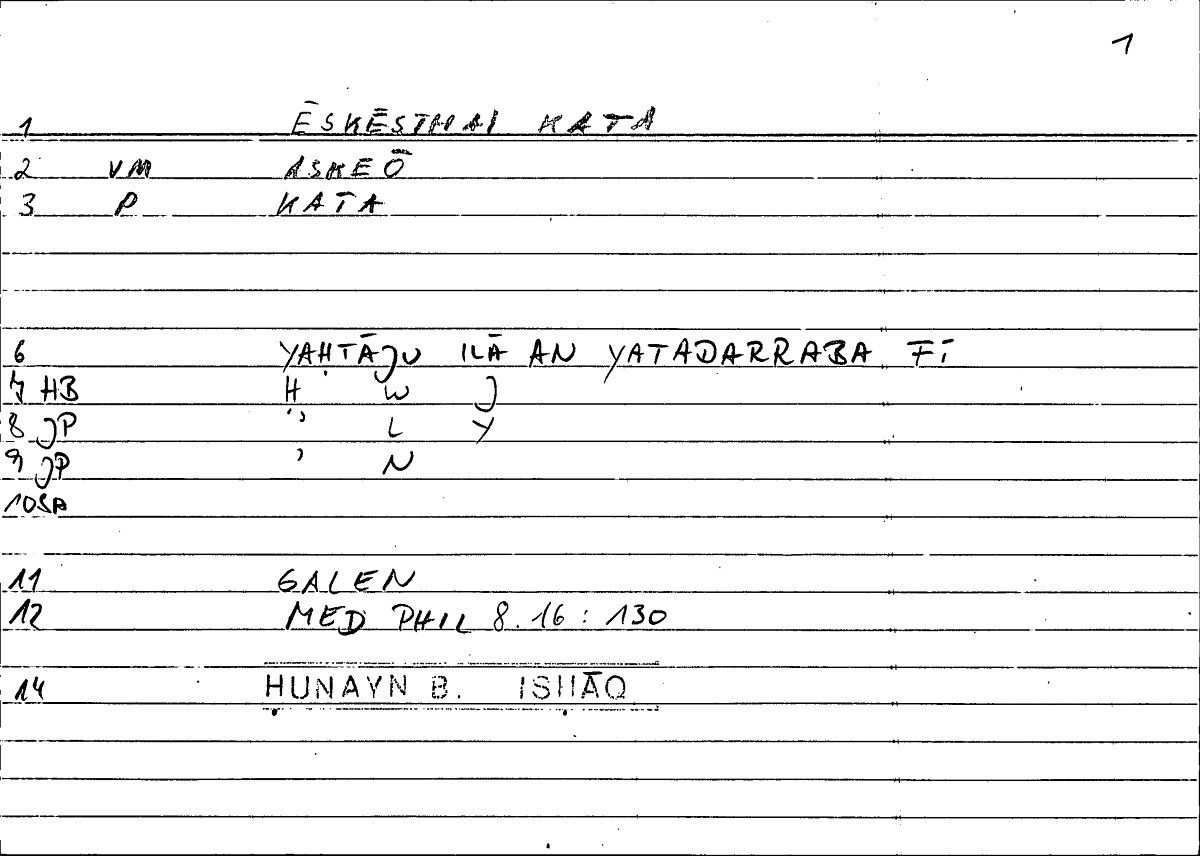 1
1 ĒSKĒSTHAI KATA
2 VM ASKEŌ
3 P KATA
6 YAḤTĀJU ILĀ AN YATADARRABA FĪ
7 HB H W J
8 JP " L Y
9 JP ' N
10SA
11 GALEN
12 MED PHIL 8.16 : 130
14 ḤUNAYN B. ISḤĀQ